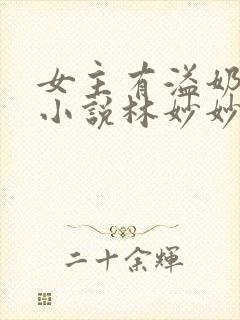 女主有溢奶
小說林妙妙
二十余輝